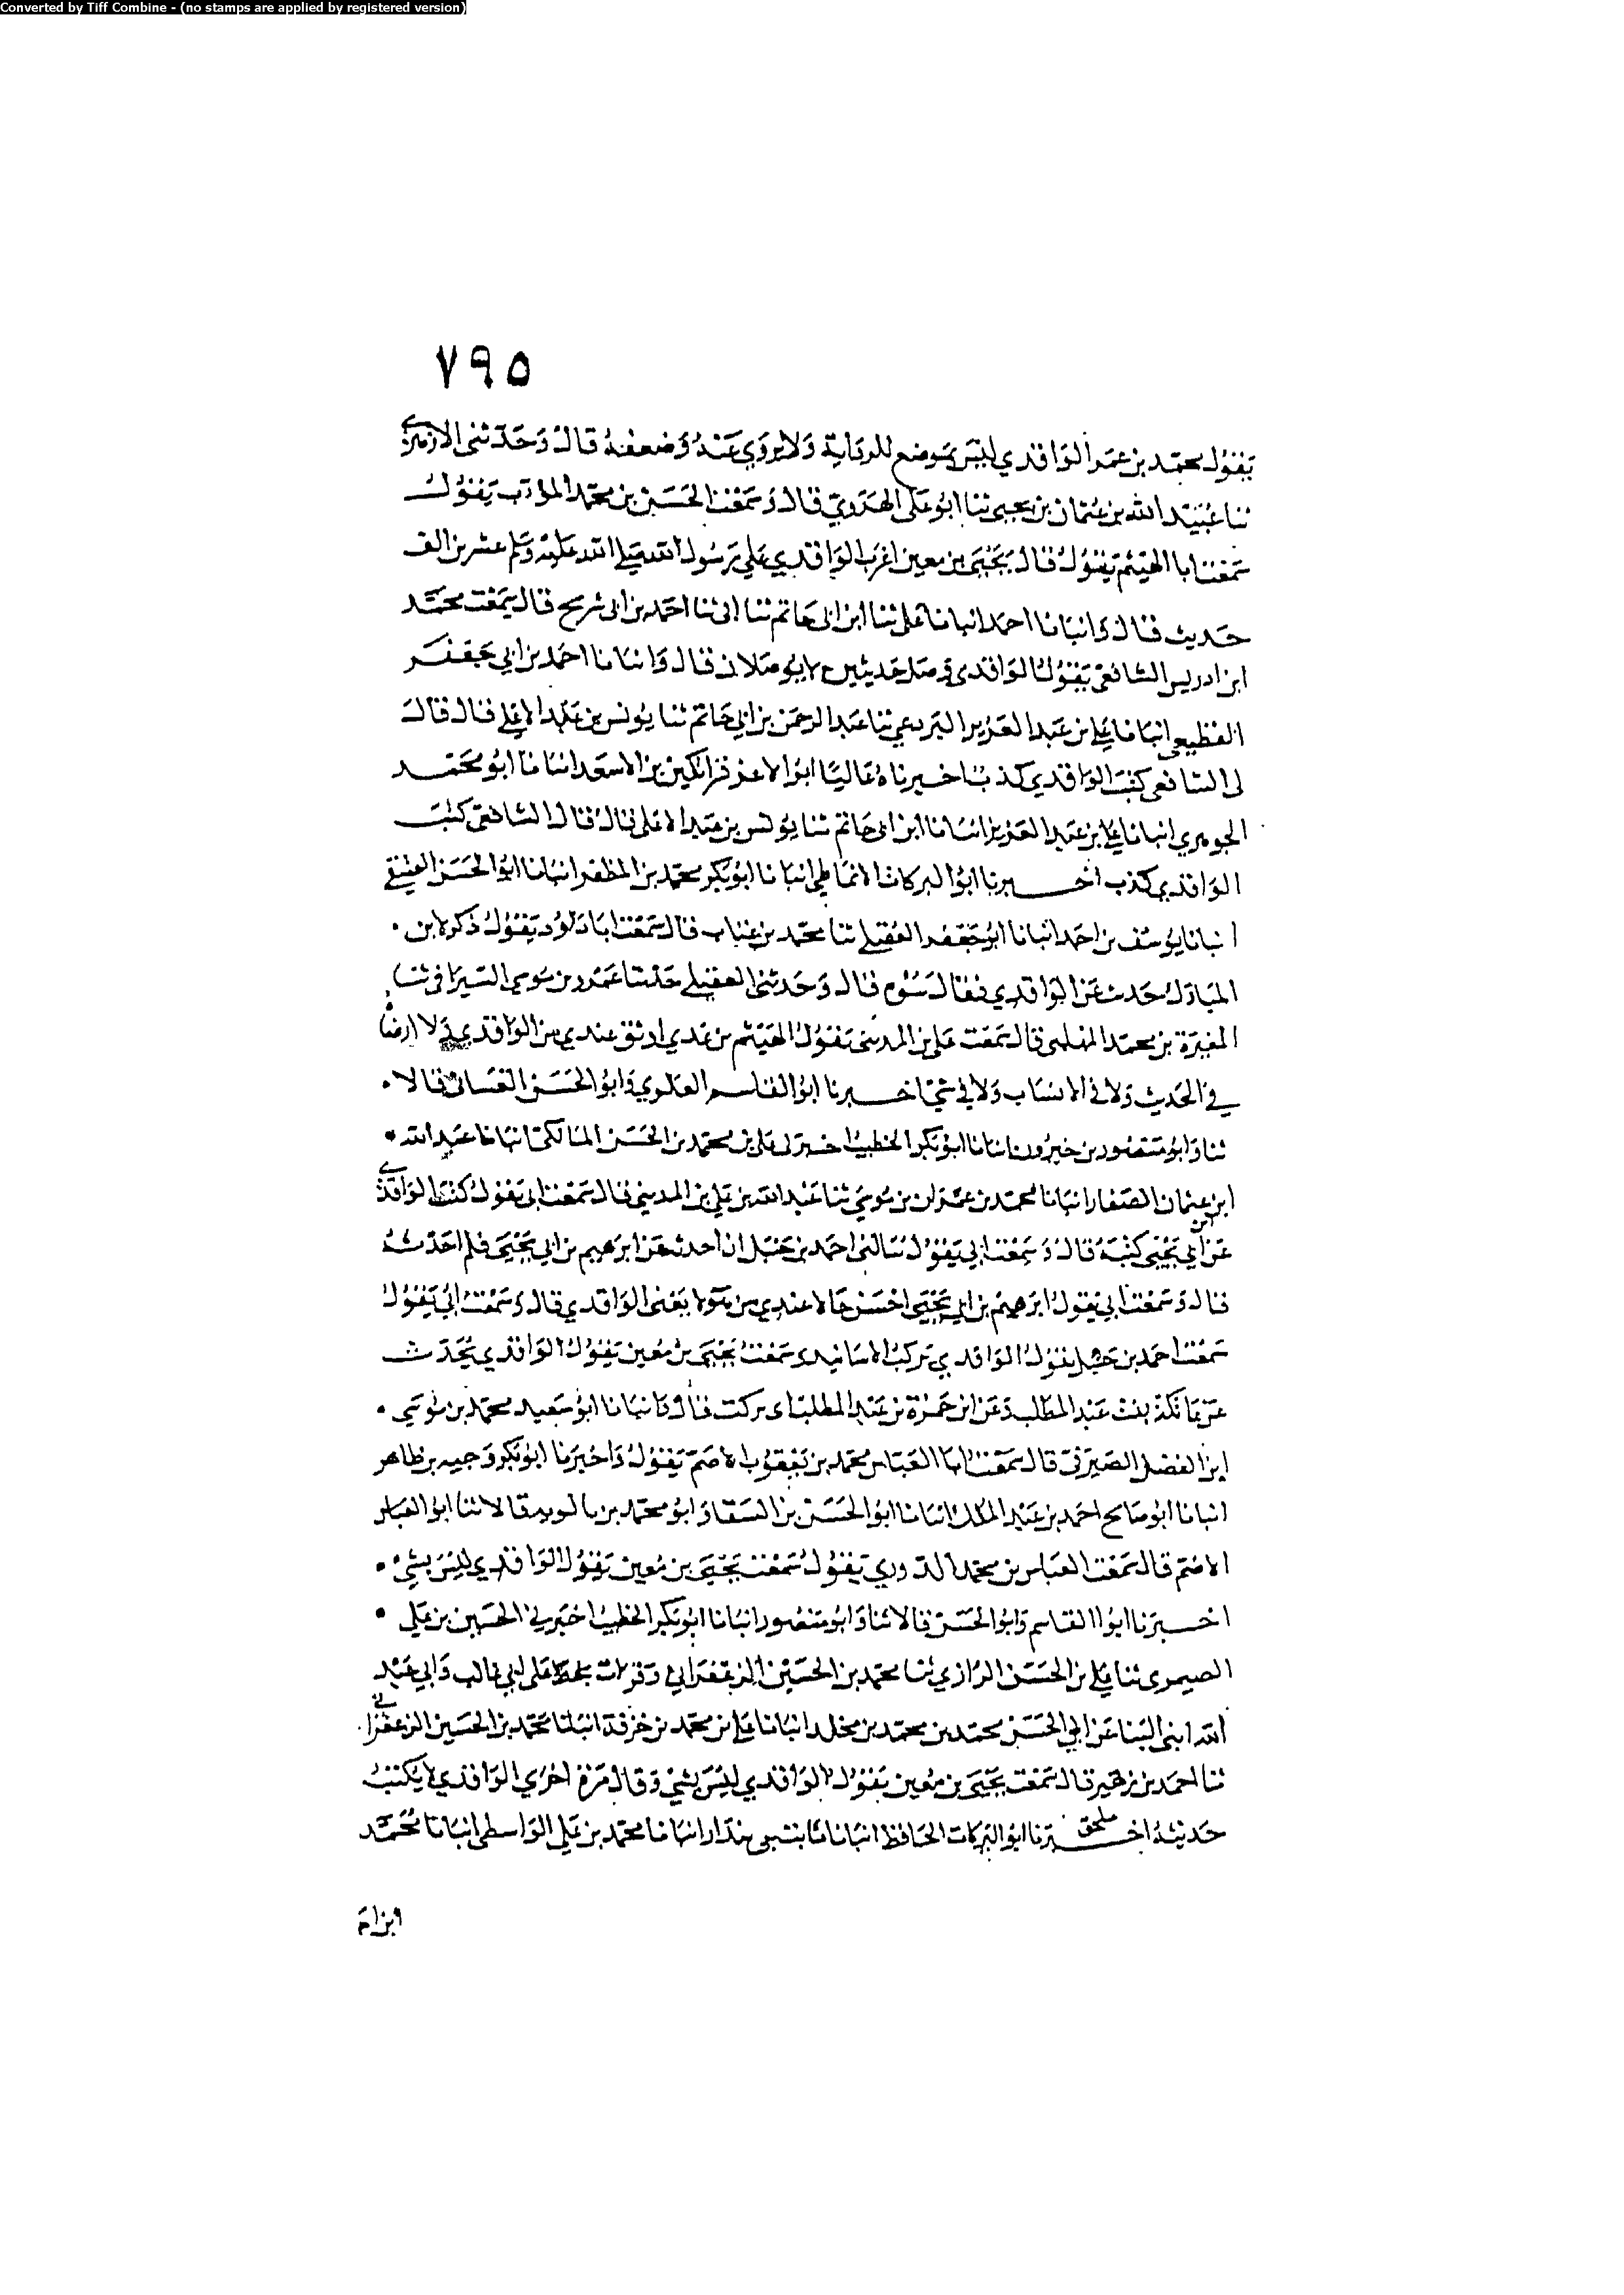 Converted by Tiff Combine - (no stamps are applied by registered version)
٧٩٥
يقول محمد بن عمر الواقدي ليس بموضع للرواية ولا يروى عنه وضعفه قال وحدثني الازهري
ثنا عبيد الله بن عثمان بن يحيى ثنا ابو علي الهروي قال وسمعت الحسين بن محمد المؤدب يقول
سمعت ابا الهيثم يقول قال يحيى بن معين اغرب الواقدي على رسول الله صلى الله عليه وسلم عشرين الف
حديث قال وانبانا احمد انبانا علي ثنا ابن ابي حاتم ثنا ابي ثنا احمد بن ابي شريح قال سمعت محمد
ابن ادريس الشافعي يقول الواقدي وصل حديثين لا يوصلان قال وانبانا احمد بن ابي جعفر
القطيعي انبانا علي بن عبد العزيز البردعي ثنا عبد الرحمن بن ابي حاتم ثنا يونس بن عبد الاعلى قال قال
لي الشافعي كتب الواقدي كذب اخبرناه عاليا ابو الاعز قراتكين بن الاسعد انبانا ابو محمد
الجوهري انبانا علي بن عبد العزيز انبانا ابن ابي حاتم ثنا يونس بن عبد الاعلى قال قال الشافعي كتب
الواقدي كذب اخبرنا ابو البركات الانماطي انبانا ابو بكر محمد بن المظفر انبانا ابو الحسن العتيقي
انبانا يوسف بن احمد انبانا ابو جعفر العقيلي ثنا محمد بن عتاب قال سمعت ابا داود يقول ذكر لابن
المبارك حديث عن الواقدي فقال سؤم قال وحدثني العقيلي حدثنا عمرو بن موسى السيرافي ثنا
المغيرة بن محمد المهلبي قال سمعت علي بن المديني يقول الهيثم بن عدي اوثق عندي من الواقدي ولا ارضاه
في الحديث ولا في الانساب ولا في شي اخبرنا ابو القاسم العلوي وابو الحسن الغساني قالا
ثنا وابو منصور بن خيرون انبانا ابو بكر الخطيب اخبرني علي بن محمد بن الحسن المالكي انبانا عبد الله
ابن عثمان الصفار انبانا محمد بن عمران بن موسى ثنا عبد الله بن علي بن المديني قال سمعت ابي يقول كتب الواقدي
عن ابن ابي يحيى كتبه قال وسمعت ابي يقول سالني احمد بن حنبل ان احدثه عن ابرهيم بن ابي يحيى فلم احدثه
قال وسمعت ابي يقول ابرهيم بن ابي يحيى احسن حالا عندي من هولا يعني الواقدي قال وسمعت ابي يقول
سمعت احمد بن حنبل يقول الواقدي يركب الاسانيد وسمعت يحيى بن معين يقول الواقدي يحدث
عن عاتكة بنت عبد المطلب وعن ابن حمزة بن عبد المطلب اي يركب قال وانبانا ابو سعيد محمد بن موسى
ابن الفضل الصيرفي قال سمعت ابا العباس محمد بن يعقوب الاصم يقول واخبرنا ابو بكر وجيه بن طاهر
انبانا ابو صالح احمد بن عبد الملك انبانا ابو الحسن بن السقا وابو محمد بن بالويه قالا ثنا ابو العباس
الاصم قال سمعت العباس بن محمد الدوري يقول سمعت يحيى بن معين يقول الواقدي ليس بشيء
اخبرنا ابو القاسم وابو الحسن قالا ثنا وابو منصور انبانا ابو بكر الخطيب اخبرني الحسين بن علي
الصيمري ثنا علي بن الحسن الرازي ثنا محمد بن الحسين الزعفراني وقرات على ابي غالب وابي عبد
الله ابني البنا عن ابي الحسن محمد بن محمد بن مخلد انبانا علي بن محمد بن خزفة انبانا محمد بن الحسين الزعفراني
ثنا احمد بن زهير قال سمعت يحيى بن معين يقول الواقدي ليس بشي وقال مرة اخرى الواقدي لا يكتب
حديثه ملحق اخبرنا ابو البركات الحافظ انبانا ثابت بن بندار انبانا محمد بن علي الواسطي انبانا محمد
ابن احم